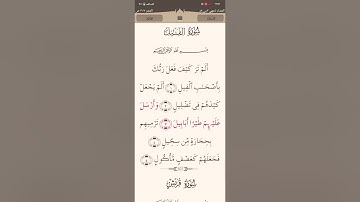 سُورَةُ الفِيلِ
بِسْمِ اللَّهِ الرَّحْمَٰنِ الرَّحِيمِ
أَلَمْ تَرَ كَيْفَ فَعَلَ رَبُّكَ
بِأَصْحَٰبِ ٱلْفِيلِ ١ أَلَمْ يَجْعَلْ
كَيْدَهُمْ فِى تَضْلِيلٍ ٢ وَأَرْسَلَ
عَلَيْهِمْ طَيْرًا أَبَابِيلَ ٣ تَرْمِيهِم
بِحِجَارَةٍ مِّن سِجِّيلٍ ٤
فَجَعَلَهُمْ كَعَصْفٍ مَّأْكُولٍ ٥
سُورَةُ قُرَيْشٍ